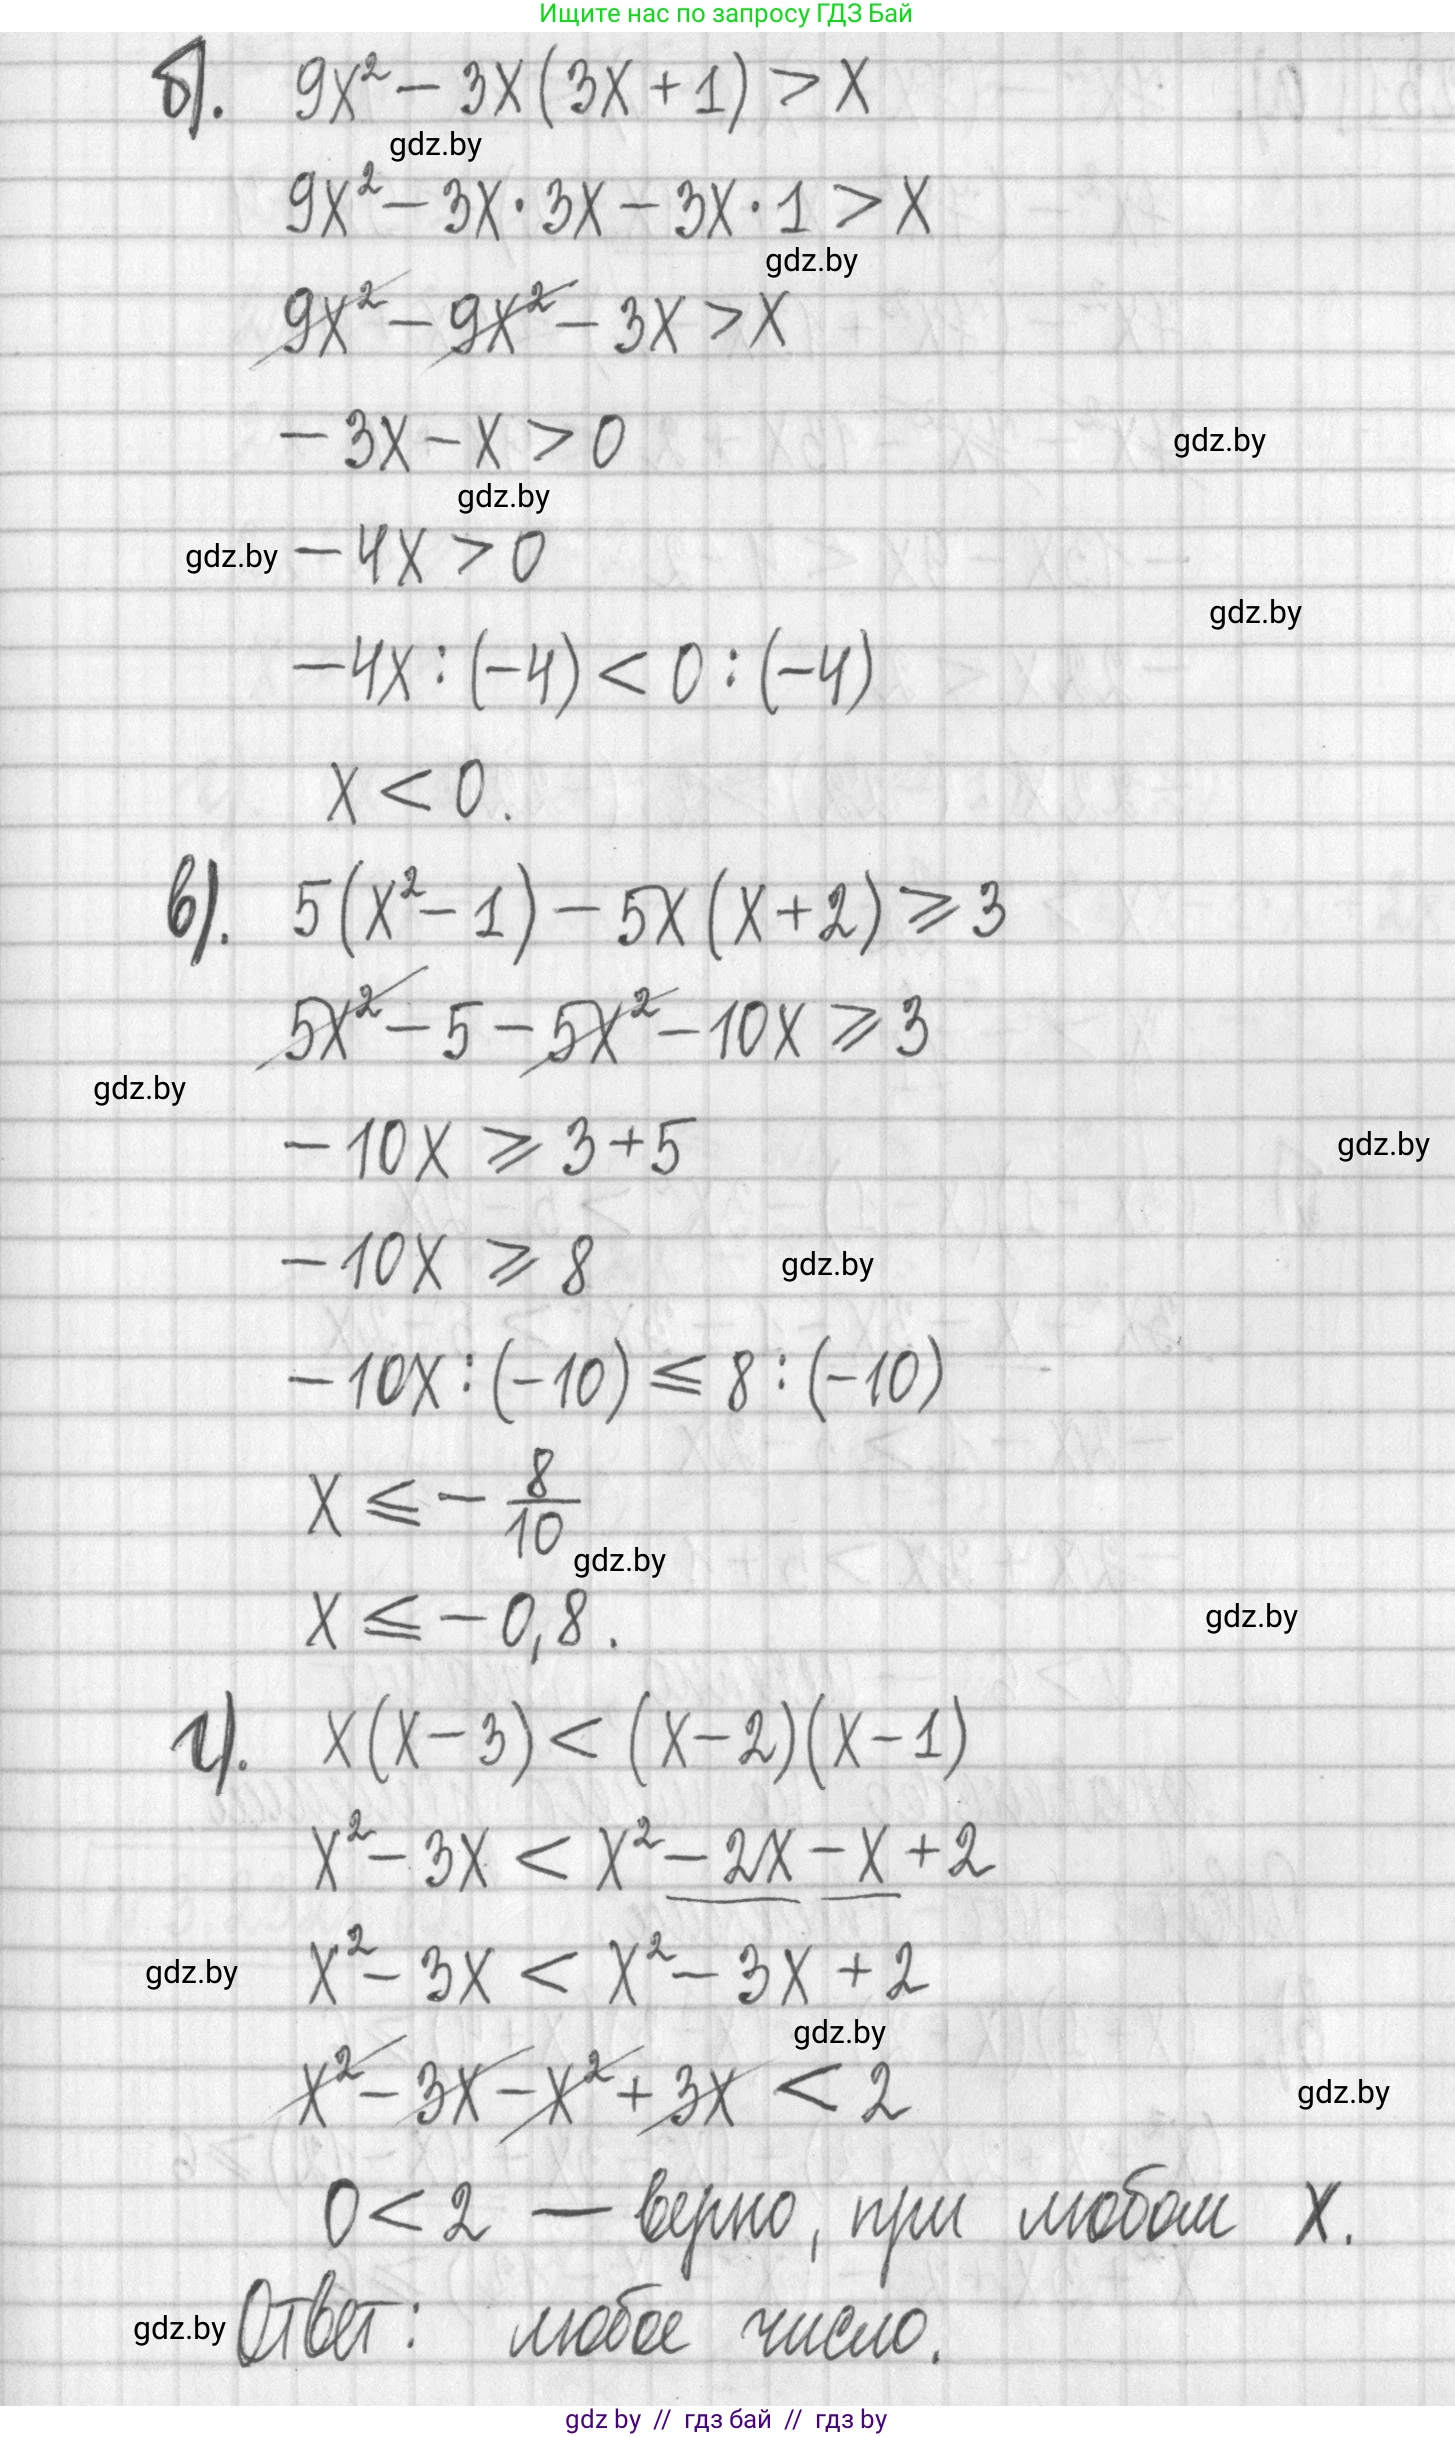 Ищите нас по запросу ГДЗ Бай
б). 9x² - 3x(3x + 1) > x
gdz.by
9x² - 3x · 3x - 3x · 1 > x
gdz.by
9x² - 9x² - 3x > x
- 3x - x > 0
gdz.by
gdz.by
gdz.by - 4x > 0
gdz.by
- 4x : (-4) < 0 : (-4)
x < 0.
в). 5(x² - 1) - 5x(x + 2) ⩾ 3
5x² - 5 - 5x² - 10x ⩾ 3
gdz.by
- 10x ⩾ 3 + 5
gdz.by
- 10x ⩾ 8
gdz.by
- 10x : (-10) ⩽ 8 : (-10)
x ⩽ - 8/10
gdz.by
x ⩽ - 0,8.
gdz.by
г). x(x - 3) < (x - 2)(x - 1)
x² - 3x < x² - 2x - x + 2
x² - 3x < x² - 3x + 2
gdz.by
gdz.by
x² - 3x - x² + 3x < 2
gdz.by
0 < 2 — верно, при любом x.
gdz.by Ответ: любое число.
gdz by // гдз бай // гдз by